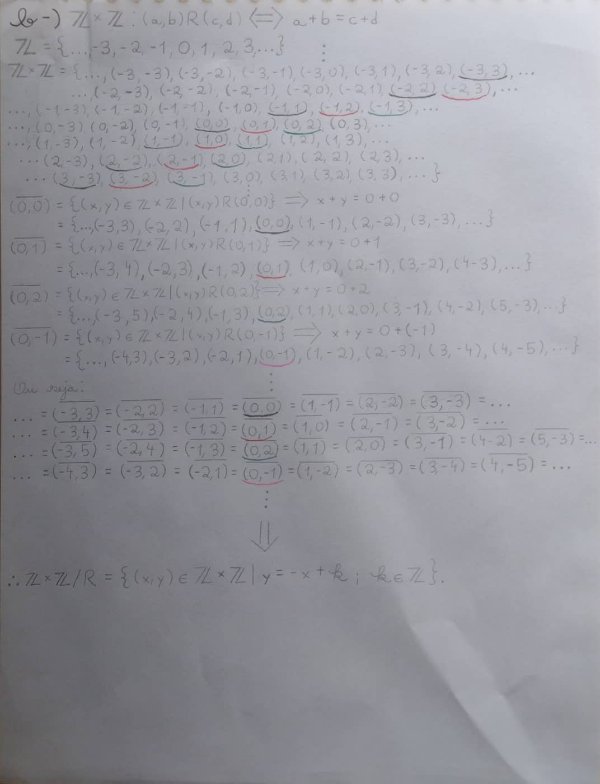 b-) ℤ×ℤ : (a,b)R(c,d) ⟺ a+b=c+d
ℤ = {...,-3,-2,-1,0,1,2,3,...} ⋮
ℤ×ℤ = {..., (-3,-3), (-3,-2), (-3,-1), (-3,0), (-3,1), (-3,2), (-3,3), ...
...,(-2,-3), (-2,-2), (-2,-1), (-2,0), (-2,1), (-2,2), (-2,3), ...
..., (-1,-3), (-1,-2), (-1,-1), (-1,0), (-1,1), (-1,2), (-1,3), ...
..., (0,-3), (0,-2), (0,-1), (0,0), (0,1), (0,2), (0,3), ...
..., (1,-3), (1,-2), (1,-1), (1,0), (1,1), (1,2), (1,3), ...
... (2,-3), (2,-2), (2,-1), (2,0), (2,1), (2,2), (2,3), ...
... (3,-3), (3,-2), (3,-1), (3,0), (3,1), (3,2), (3,3), ...}
⋮
(0,0)̅ = {(x,y) ∈ ℤ×ℤ | (x,y) R (0,0)} ⟹ x+y = 0+0
= {...,(-3,3), (-2,2), (-1,1), (0,0), (1,-1), (2,-2), (3,-3), ...}
(0,1)̅ = {(x,y) ∈ ℤ×ℤ | (x,y) R (0,1)} ⟹ x+y = 0+1
= {...,(-3,4), (-2,3), (-1,2), (0,1), (1,0), (2,-1), (3,-2), (4-3), ...}
(0,2)̅ = {(x,y) ∈ ℤ×ℤ | (x,y) R (0,2)} ⟹ x+y = 0+2
= {...,(-3,5), (-2,4), (-1,3), (0,2), (1,1), (2,0), (3,-1), (4,-2), (5,-3), ...}
(0,-1)̅ = {(x,y) ∈ ℤ×ℤ | (x,y) R (0,-1)} ⟹ x+y = 0+(-1)
= {..., (-4,3), (-3,2), (-2,1), (0,-1), (1,-2), (2,-3), (3,-4), (4,-5), ...}
⋮
Ou seja:
... = (-3,3)̅ = (-2,2)̅ = (-1,1)̅ = (0,0)̅ = (1,-1)̅ = (2,-2)̅ = (3,-3)̅ = ...
... = (-3,4)̅ = (-2,3)̅ = (-1,2)̅ = (0,1)̅ = (1,0)̅ = (2,-1)̅ = (3,-2)̅ = ...
... = (-3,5)̅ = (-2,4)̅ = (-1,3)̅ = (0,2)̅ = (1,1)̅ = (2,0)̅ = (3,-1)̅ = (4-2)̅ = (5,-3)̅ = ...
... = (-4,3)̅ = (-3,2)̅ = (-2,1)̅ = (0,-1)̅ = (1,-2)̅ = (2,-3)̅ = (3-4)̅ = (4,-5)̅ = ...
⋮
⇓
∴ ℤ×ℤ/R = {(x,y) ∈ ℤ×ℤ | y = -x + k ; k ∈ ℤ}.